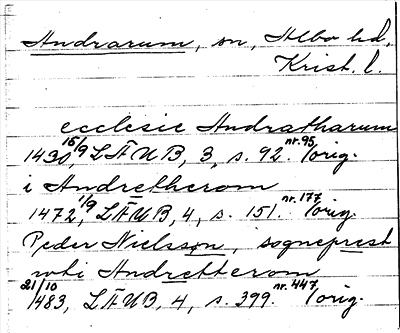 Andrarum, sn, Albo hd,
Krist. l.
ecclesie Andratharum
1430 15/9, LÄUB, 3, s. 92. nr. 95 /orig.
i Andretherom
1472, 1/9 LÄUB, 4, s. 151. nr. 177 /orig.
Peder Nielsson, sogneprest
wti Andretterom
21/10 1483, LÄUB, 4, s. 399. nr. 447 /orig.